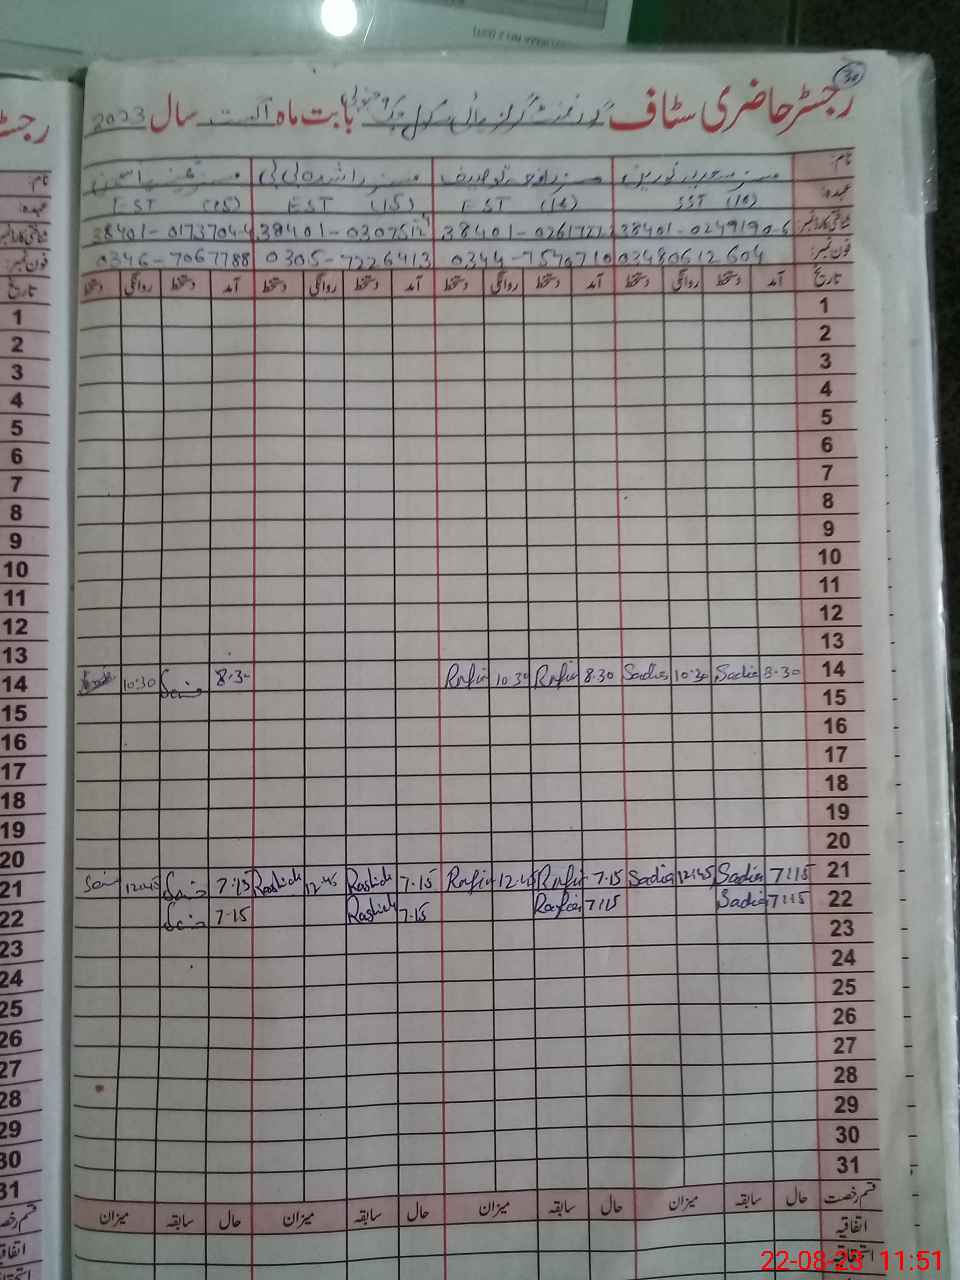 30
رجسٹر حاضری سٹاف گورنمنٹ گرلز ہائی سکول بابت ماہ اگست سال 2023
نام:
عہدہ: SST (16) EST (14) EST (15) EST (15)
شناختی کارڈ نمبر 38401-0249190-6 38401-02617222 38401-0307512 38401-0173704-4
فون نمبر: 03480612604 0344-7540710 0305-7226413 0346-7067788
تاریخ آمد دستخط روانگی دستخط آمد دستخط روانگی دستخط آمد دستخط روانگی دستخط آمد دستخط روانگی دستخط
1
2
3
4
5
6
7
8
9
10
11
12
13
14 8-30 Sadia 10-30 Sadia 8.30 Rafia 10.30 Rafia 8.30 10:30
15
16
17
18
19
20
21 7:15 Sadia 12:45 Sadia 7.15 Rafia 12.45 Rafia 7.15 Rashida 12.45 Rashida 7:15 12.45
22 7:15 Sadia 7:15 Raafia 7.15 Rashida 7-15
23
24
25
26
27
28
29
30
31
قسم رخصت حال سابقہ میزان حال سابقہ میزان حال سابقہ میزان حال سابقہ میزان
اتفاقیہ
استحقاقیہ
22-08-23 11:51